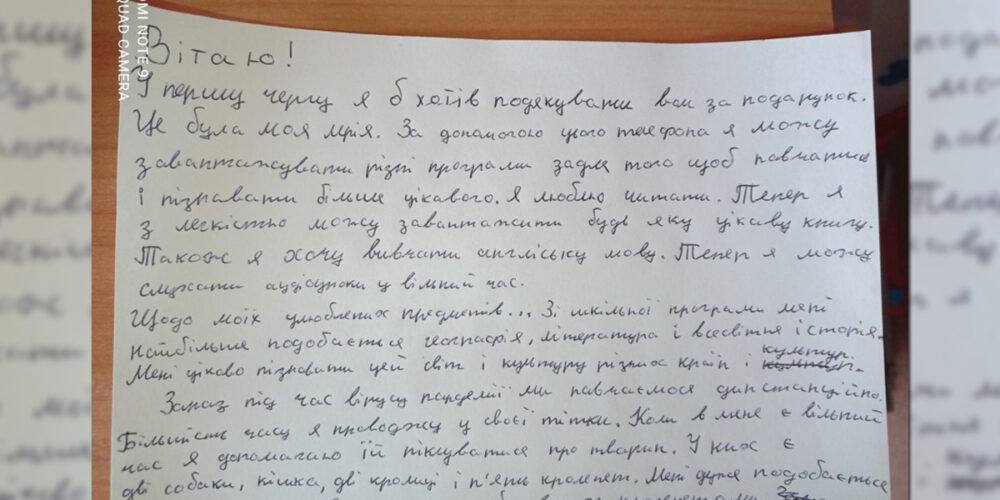 Вітаю!
У першу чергу я б хотів подякувати вам за подарунок.
Це була моя мрія. За допомогою цього телефона я можу
завантажувати різні програми задля того щоб навчатися
і пізнавати більше цікавого. Я люблю читати. Тепер я
з легкістю можу завантажити будь яку цікаву книгу.
Також я хочу вивчати англіську мову. Тепер я можу
слухати аудіоуроки у вільний час.
Щодо моїх улюблених предметів... Зі шкільної програми мені
найбільше подобається географія, література і всесвітня історія.
Мені цікаво пізнавати цей світ і культуру різних країн і культур.
Зараз під час вірусу пандемії ми навчаємося дистанційно.
Більшість часу я проводжу у своєї тітки. Коли в мене є вільний
час я допомагаю їй піклуватися про тварин. У них є
дві собаки, кішка, дві кролиці і п'ять кроленят. Мені дуже подобається
NOTE 9
QUAD CAMERA